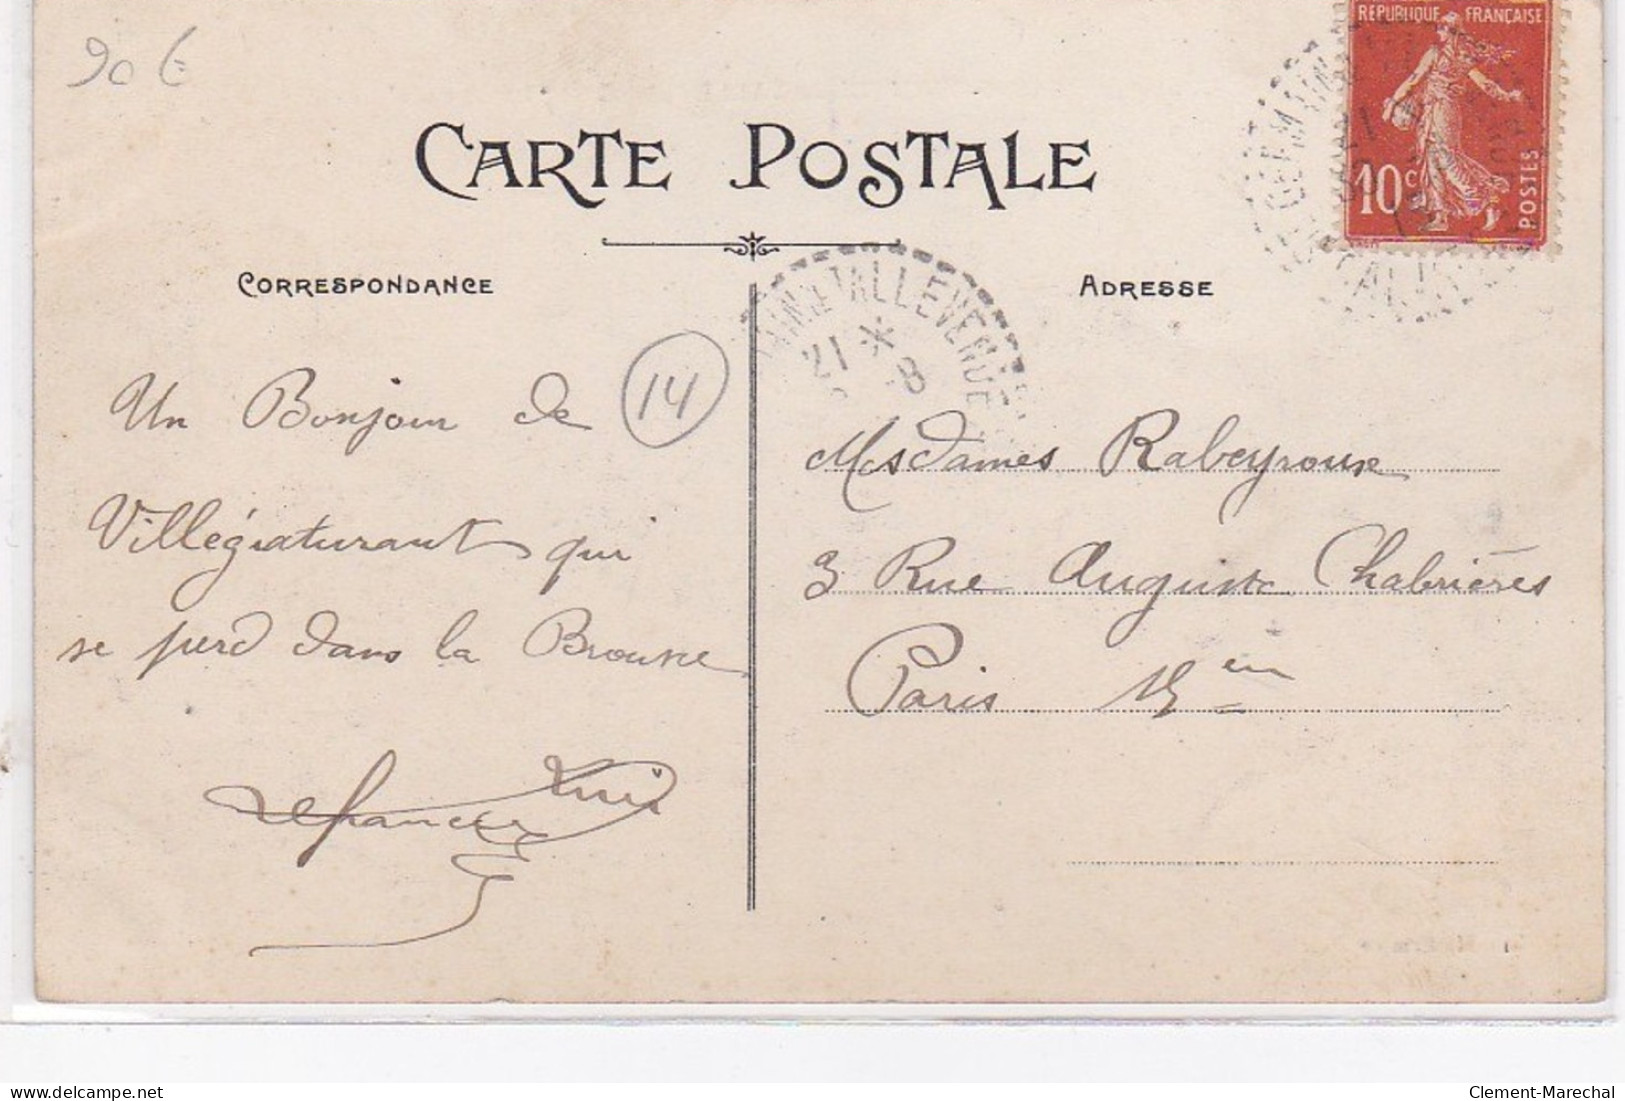 90 €
RÉPUBLIQUE FRANÇAISE
10 c
POSTES
CARTE POSTALE
CORRESPONDANCE
ADRESSE
GERMAIN
TALLEVENDE
21 * 8
14
Un Bonjour de
Villégiaturant qui
se perd dans la Brousse
Mesdames Rabeyroux
3 Rue Auguste Chabrières
Paris 15 em
Clement-Marechal
delcampe.net